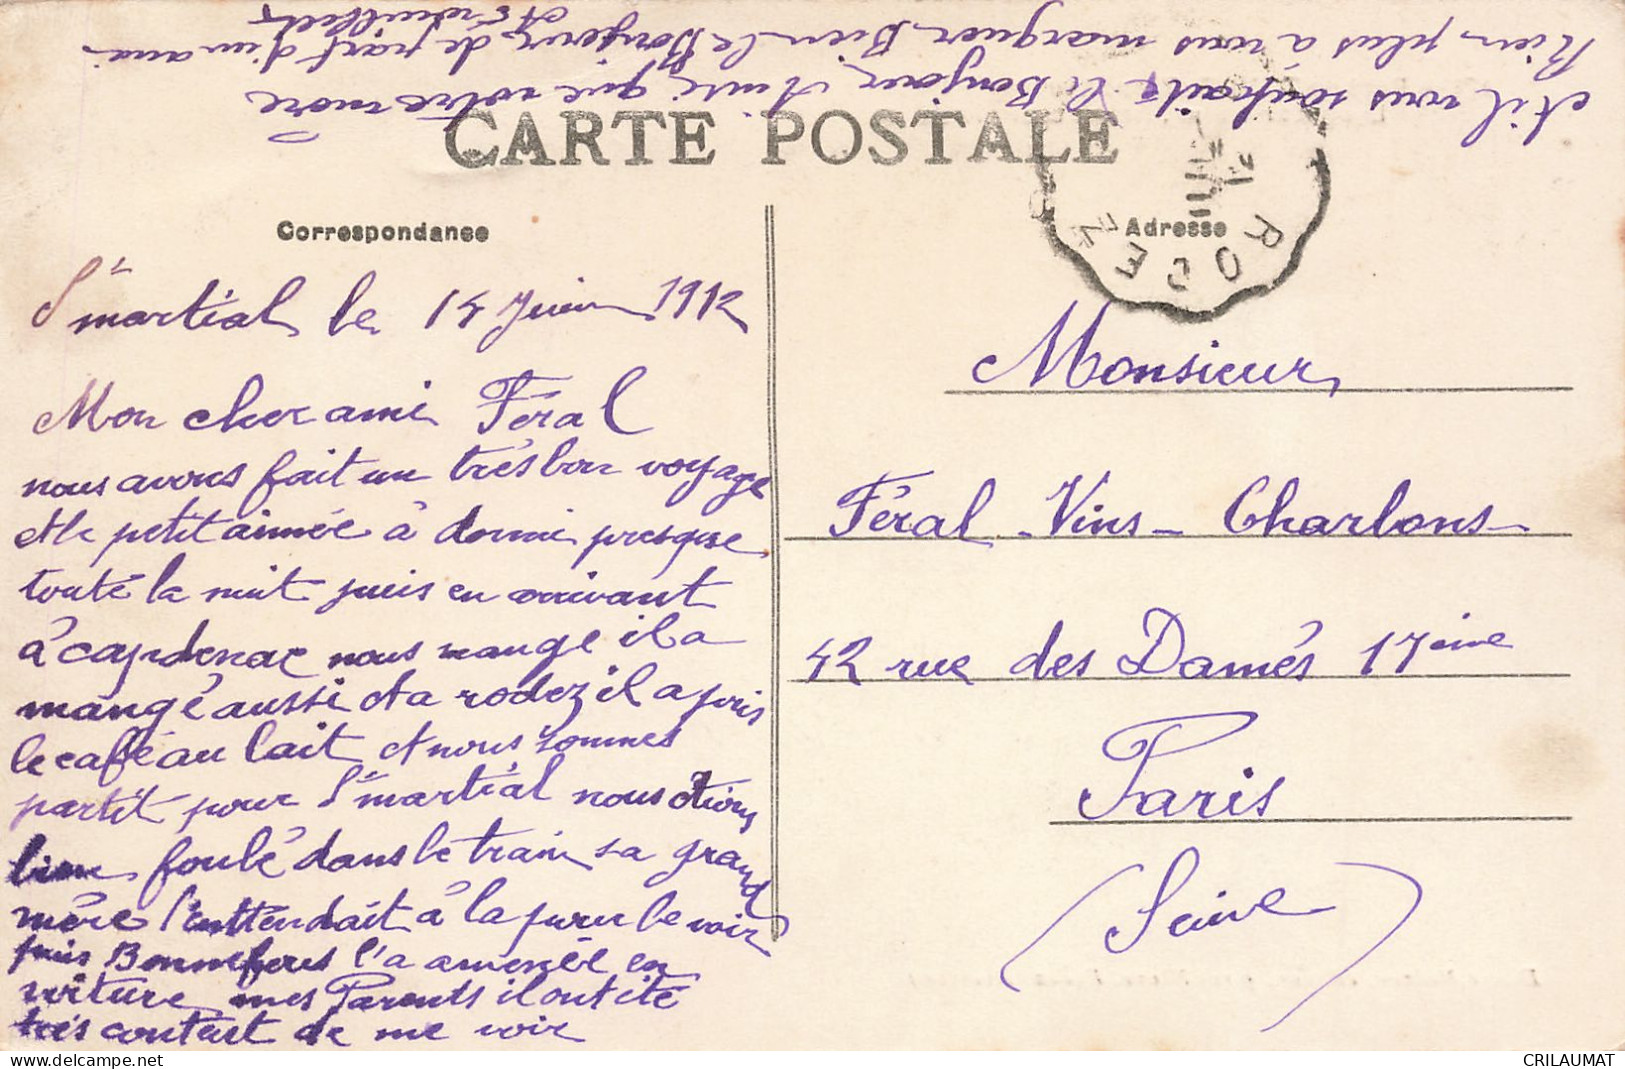 CARTE POSTALE
Correspondance
Adresse
ROCEZ
St martial le 14 Juin 1912
Mon cher ami Féral
nous avons fait un trés bon voyage
et le petit aimée à dormi presque
toute la nuit puis en arrivant
à capdenac nous mangé il a
mangé aussi et a rodez il a pris
le café au lait et nous sommes
partit pour St martial nous étions
bien foulé dans le train sa grand
mère l'attendait à la pour le voir
puis Bonnefous l'a amenée en
voiture mes Parents il ont été
trés content de me voir
et il vous souhaite le Bonjour Ainsi que votre mère
Rien plus à vous marquer Bien le Bonjour de part d'un ami
Monsieur
Féral - Vins - Charbons
42 rue des Damés 17 ème
Paris
(Seine)
CRILAUMAT
delcampe.net